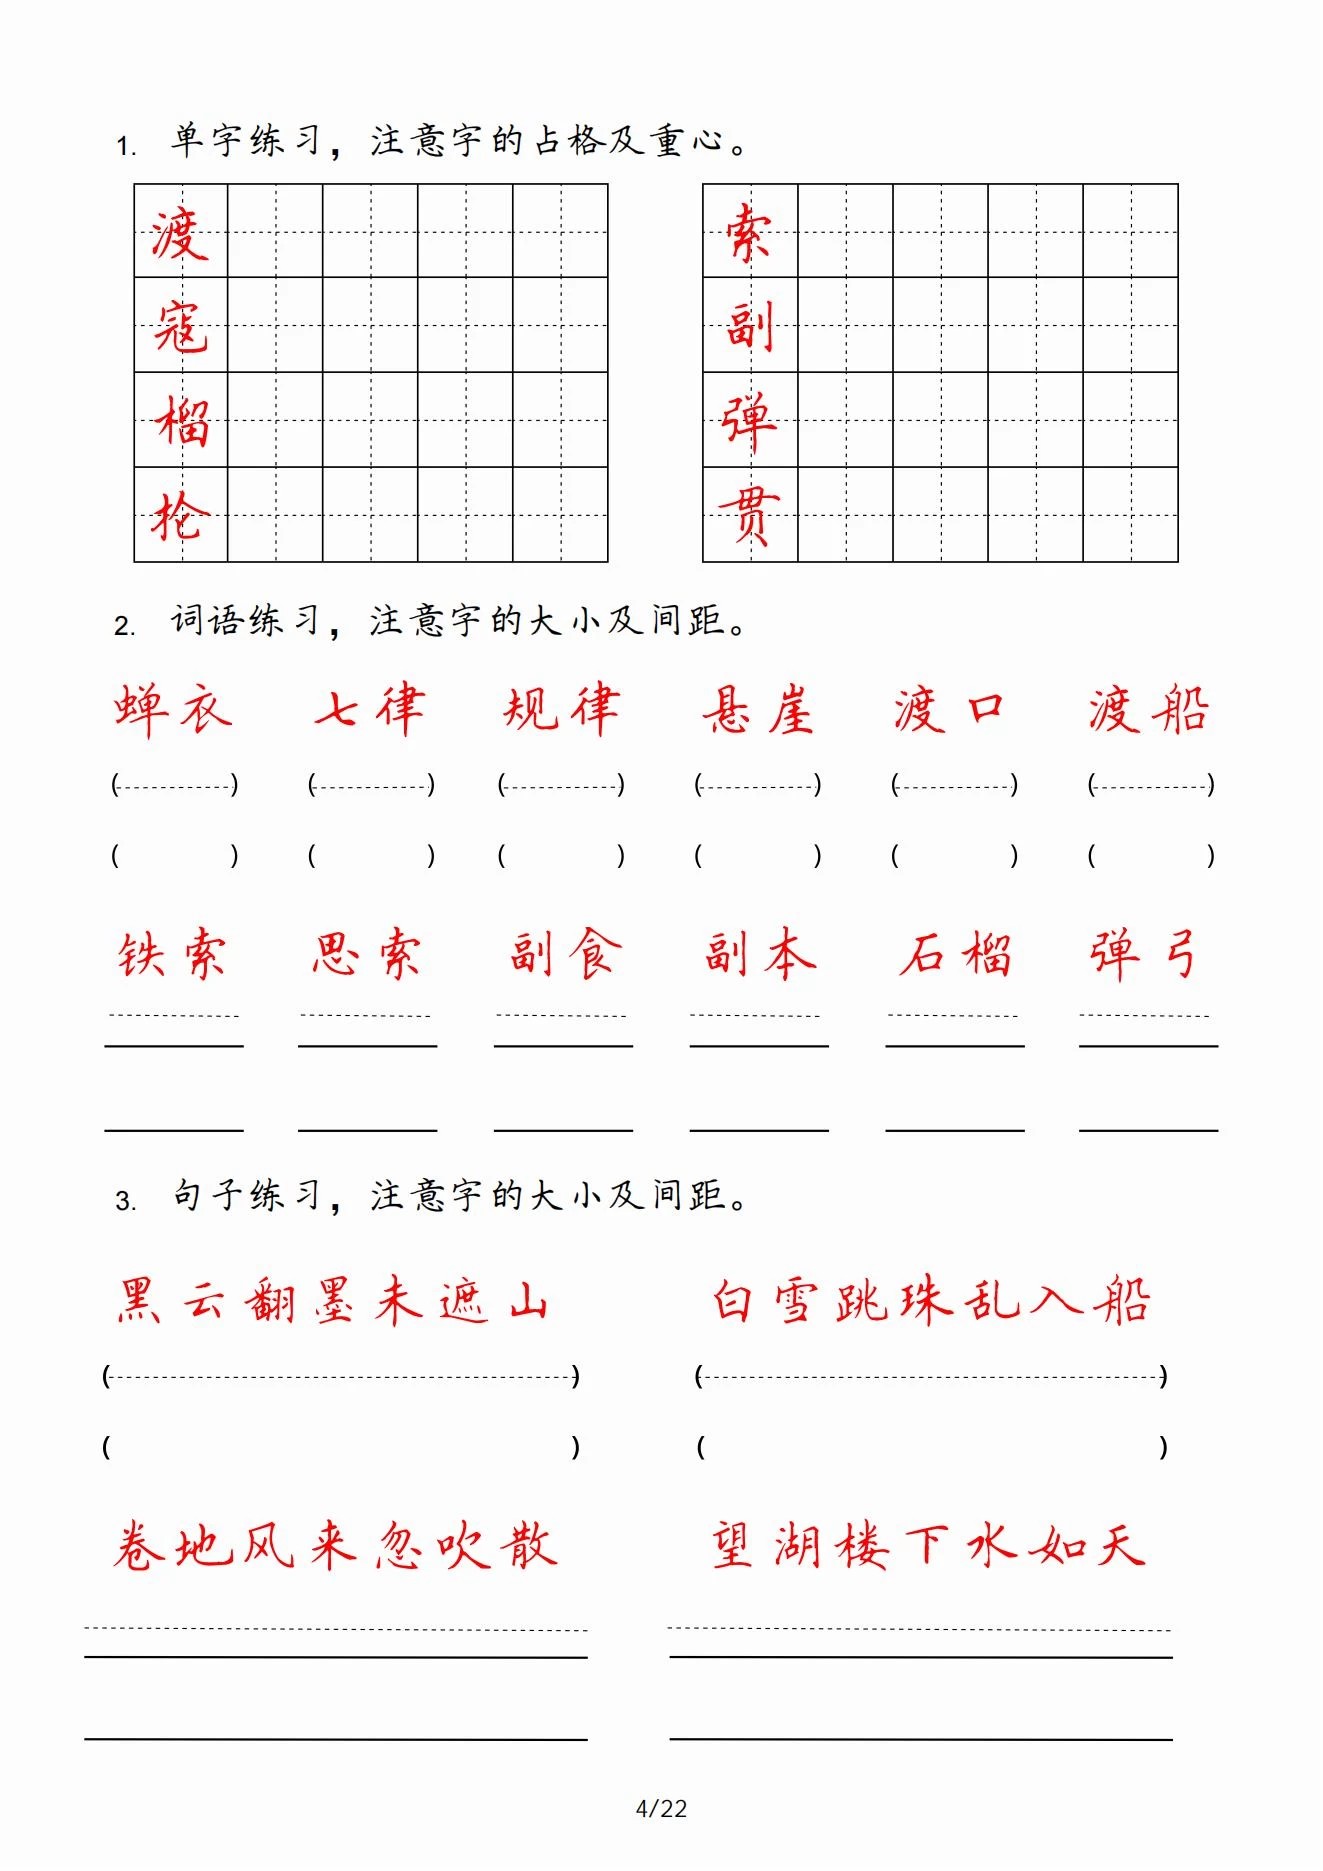 1. 单字练习，注意字的占格及重心。
渡 索
寇 副
榴 弹
抡 贯
2. 词语练习，注意字的大小及间距。
蝉衣 七律 规律 悬崖 渡口 渡船
( ) ( ) ( ) ( ) ( ) ( )
( ) ( ) ( ) ( ) ( ) ( )
铁索 思索 副食 副本 石榴 弹弓
3. 句子练习，注意字的大小及间距。
黑云翻墨未遮山 白雪跳珠乱入船
( ) ( )
( ) ( )
卷地风来忽吹散 望湖楼下水如天
4/22